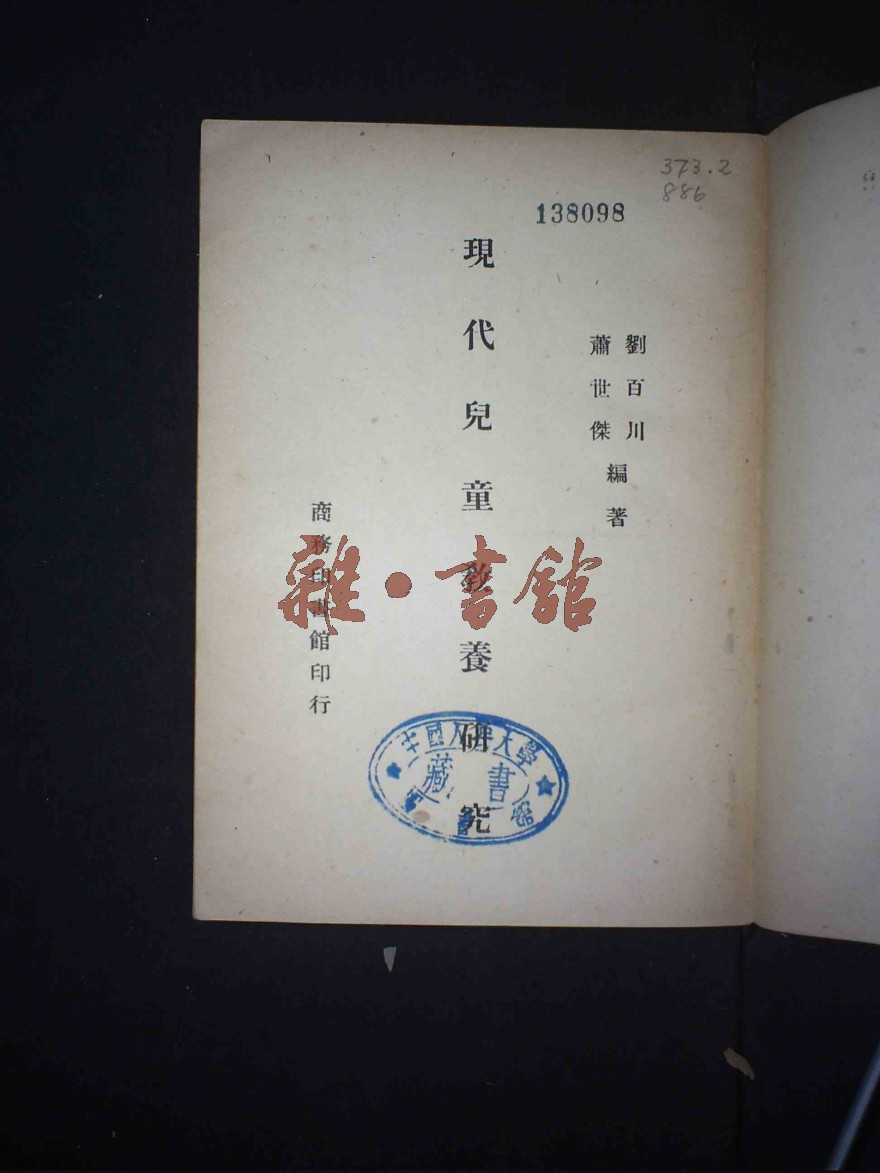 373.2
886
138098
劉百川
蕭世傑
編著
現代兒童教養研究
商務印書館印行
雜·書館
中國人民大學
藏書
館